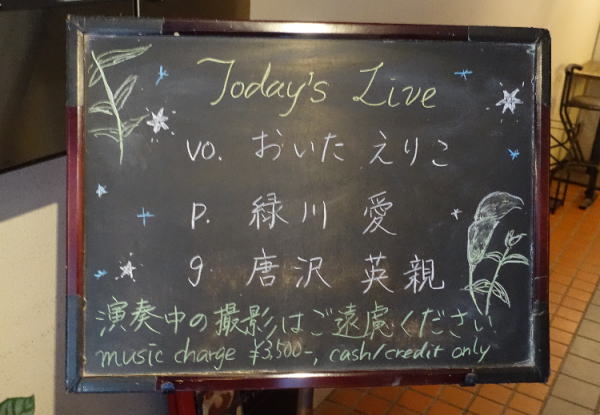 Today's Live
vo. おいた えりこ
p. 緑川 愛
g 唐沢 英親
演奏中の撮影はご遠慮ください
music charge ¥3,500-, cash/credit only